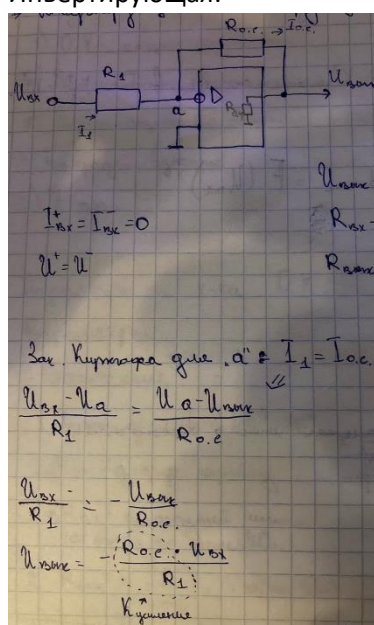 Инвертирующая.
R о.с. → I о.с.
R₁
Uвх
a
Uвых
I₁
Uвых
I⁺вх = I⁻вх = 0
Rвх
U⁺ = U⁻
Rвых
Зак. Кирхгофа для "a": I₁ = I о.с.
(Uвх - Ua)/R₁ = (Ua - Uвых)/R о.с
Uвх/R₁ = - Uвых/R о.с.
Uвых = - (R о.с. · Uвх)/R₁
K усиление